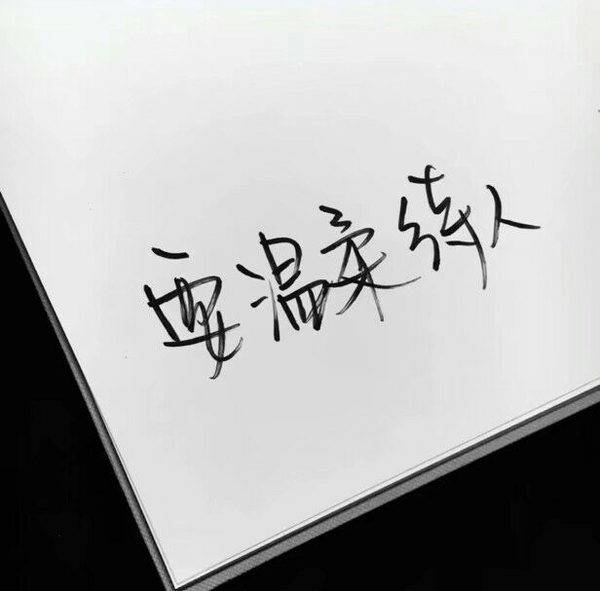 要温柔待人